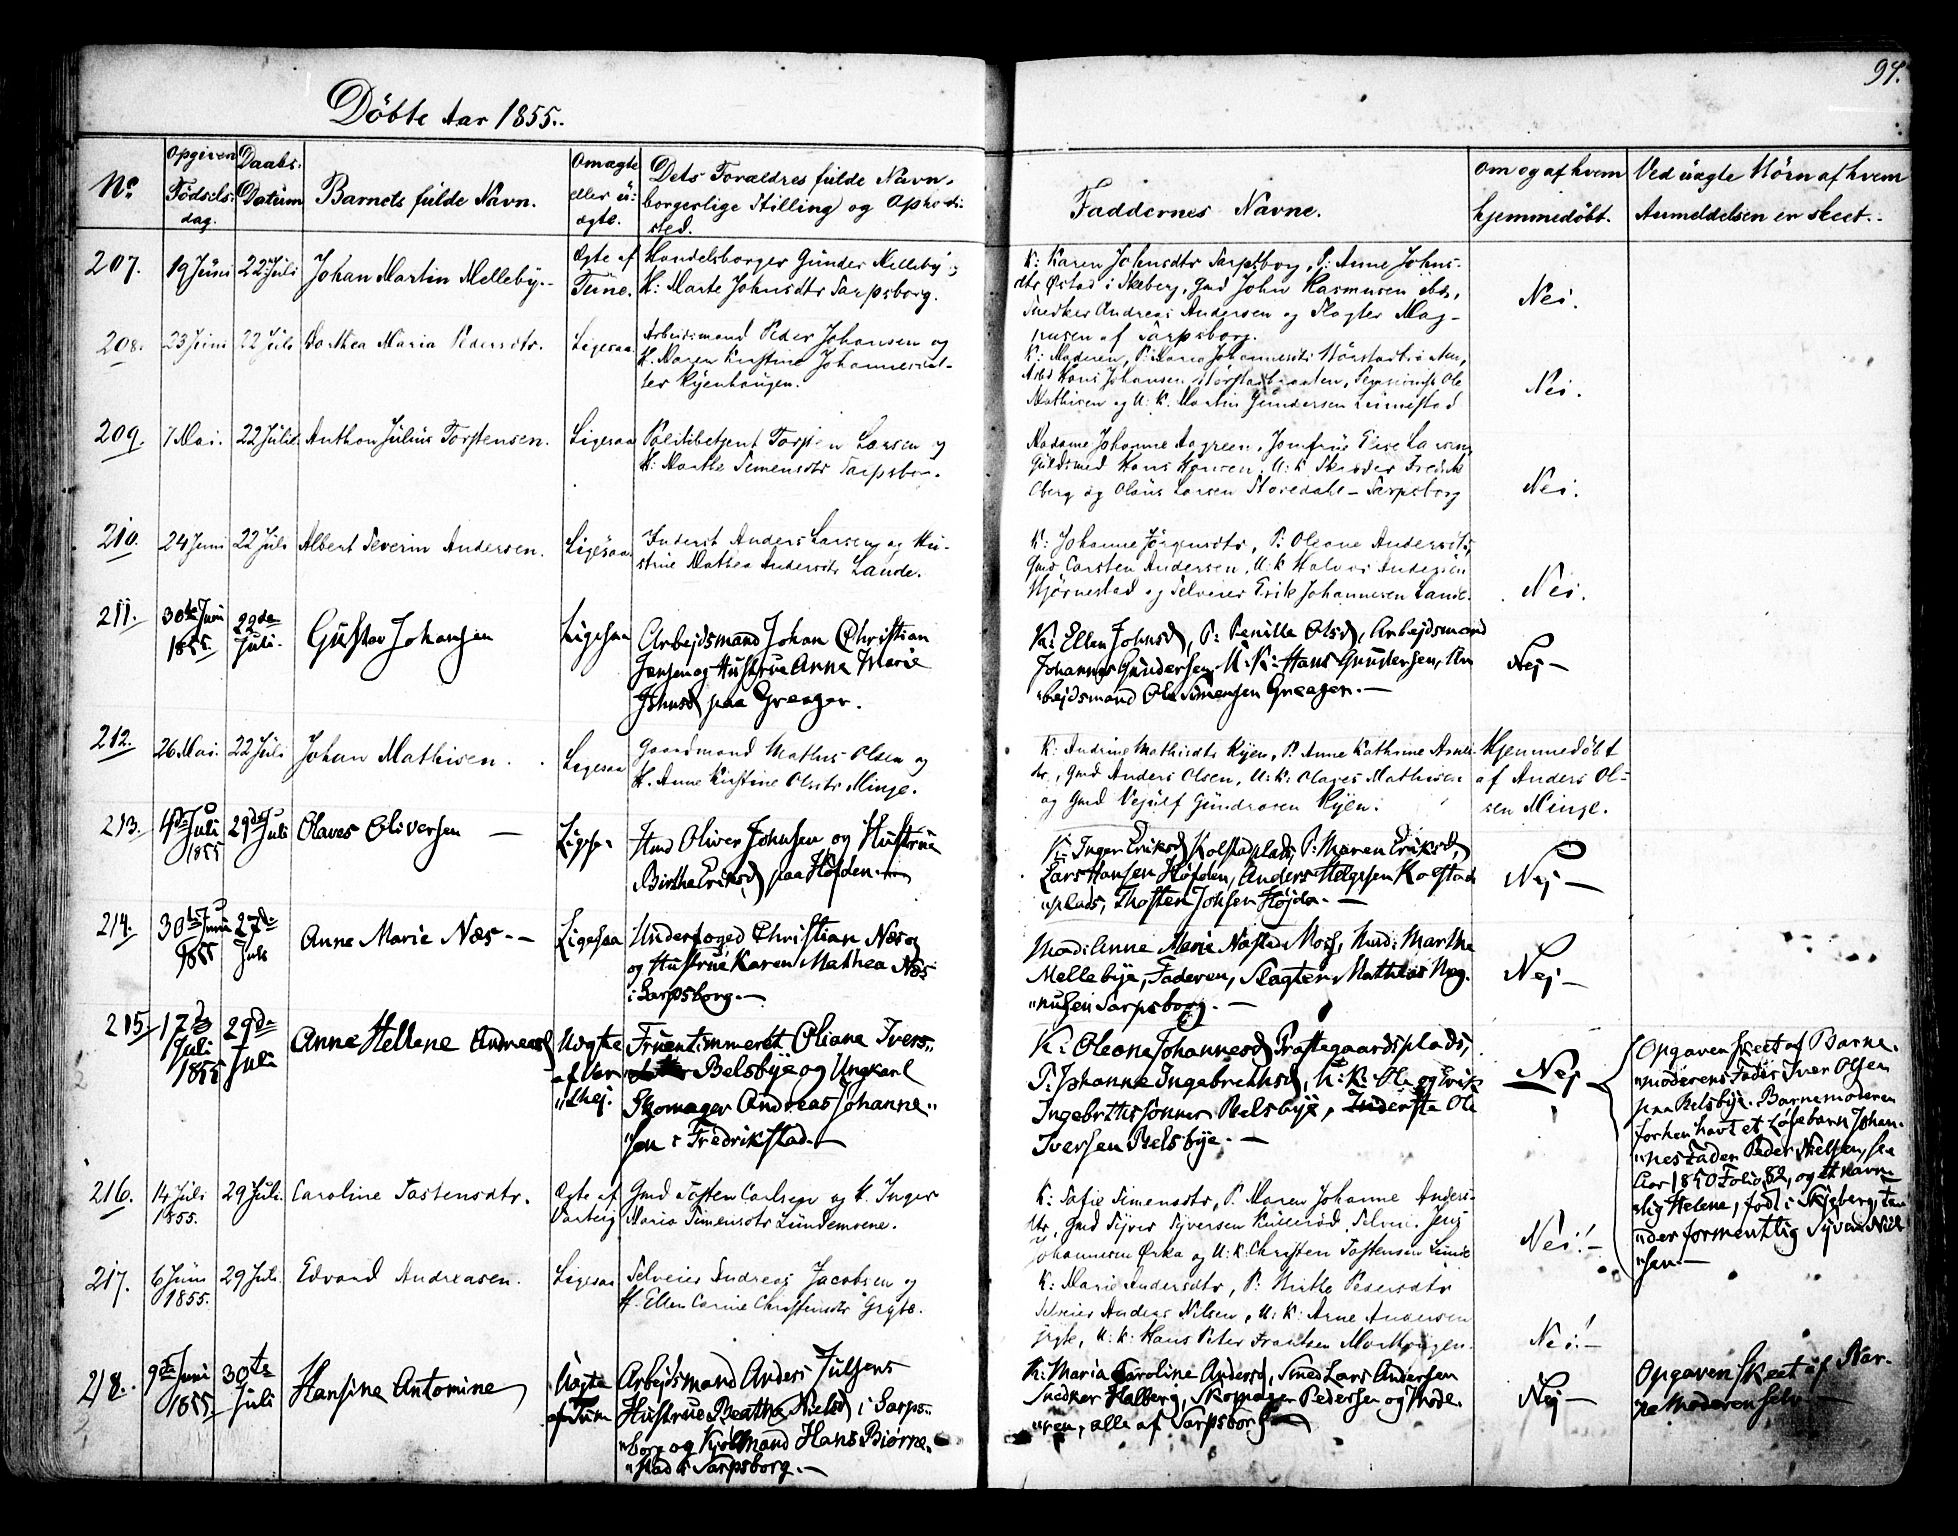 94.
Döbte Aar 1855.
No.
Opgiven
Födsels-
dag.
Daabs-
Datum
Barnets fulde Navn.
Om ægte
eller u-
ægte.
Dets Forældres fulde Navn,
borgerlige Stilling og Opholds-
sted.
Faddernes Navne.
Om og af hvem
hjemmedöbt.
Ved uægte Börn af hvem
Anmeldelsen er skeet.
207.
19 Juni
22 Juli
Johan Martin Melleby.
Ægte af
Tune.
Handelsborger Gunder Melleby og
H: Marte Johnsdtr Sarpsborg.
K: Karen Johnsdtr Sarpsborg, P: Anne Johns-
dtr Östad i Skeberg, Gmd John Rasmusen ibd,
Snedker Andreas Andersen og Slagter Mag-
nusen af Sarpsborg.
Nei.
208.
23 Juni
22 Juli
Dorthea Maria Pedersdtr.
Ligesaa
Arbeidsmand Peder Johansen og
H. Maren Kirstine Johannesdat-
ter Kjenhaugen.
K: Moderen, P: Maria Johannesdtr
Arbd Hans Johansen
Mathisen og U. K. Martin Gundersen Lunnestad
Nei.
209.
7 Mai.
22 Juli
Anthon Julius Torstensen.
Ligesaa
Politibetjent Torsten Larsen og
H: Marthe Simensdtr Sarpsborg.
Madame Johanne Aagreen, Jomfrue Elise Larsen
Guldsmed Hans Hansen, U: K Skreder Fredrik
Oberg og Olaus Larsen Storedahl - Sarpsborg
Nei.
210.
24 Juni
22 Juli
Albert Severin Andersen.
Ligesaa
Inderst Anders Larsen og Hu-
strue Mathea Andersdtr Lande.
K: Johanne Jörgensdtr, P: Oleane Andersdtr,
Gmd Carsten Andersen, U: K Halvor Andersen
Hjörnestad og Selveier Erik Johannesen Lande.
Nei.
211.
30te Juni
1855.
22de
Juli.
Gustav Johansen
Ligesaa
Arbejdsmand Johan Christian
Jensen og Hustrue Anne Marie
Johnsd paa Greager.
K: Ellen Johnsd, P: Pernille Olsd, Arbejdsmand
Johannes Gundersen, U: K: Hans Gundersen, Ar
"bejdsmand Ole Simensen Greager. —
Nej —
212.
26 Mai.
22 Juli
Johan Mathisen.
Ligesaa
Gaardmand Mathis Olsen og
H. Anne Kirstine Olsdtr Minge.
K: Andrine Mathisdtr Kjen, P: Anne Kathrine Arnes-
dtr, Gmd Anders Olsen, U: K: Olaves Mathisen
og Gmd Vejulf Gundersen Kjen.
Hjemmedöbt
af Anders Ol-
sen Minge.
213.
Juli
1855
29de Juli
Olaves Oliversen —
Ligesaa
Hmd Oliver Johnsen og Hustrue
Birthe Eriksd paa Höjden. —
K: Inger Eriksd Kolstadplads, P: Maren Eriksd,
Lars Hansen Höjden, Anders Helgesen Kolstad
"plads, Thosten Johsen Höjda. —
Nej —
214.
30te Juni
1855
27de
Juli
Anne Marie Næs. —
Ligesaa
Underfoged Christian Næs og
og Hustrue Karen Mathea Næs
i Sarpsborg. —
Mad: Anne Marie Næstad Moss, Mad: Marthe
Mellebye, Faderen, Slagter Mathias Mag-
"nusen Sarpsborg. —
Nej —
215
12te
Juli
1855
29de
Juli
Anne Hellene Andreasd
Uægte
af Var
"thej.
Fruentimmeret Oliane Ivers-
datter Belsbye og Ungkarl
Skomager Andreas Johanne-
"sen i Fredrikstad. —
K: Oleone Johannesd Præstegaardsplads,
P: Johanne Ingebrethsd, U: K: Ole og Erik
Ingebrethssönner Belsbye, Inderste Ole
Iversen Belsbye. —
Nej —
Opgaven skeet af Barne-
"moderens Fader Iver Olsen
paa Belsbye. Barnemoderen
forhen havt et Løsebarn Johan-
"nes Fader Peder Nielsen, see
Aar 1850 Folio 82, og et navn-
lig Helene, fødl i Skjeberg, Fa-
"der formentlig Syver Niel-
"sen —
216.
14 Juli
1855.
29 Juli.
Caroline Tostensdtr.
Ægte af
Varteig
Gmd Tosten Carlsen og H. Inger
Maria Simensdtr Lundemoene.
K: Sofie Simensdtr, P. Maren Johanne Anders-
dtr, Gmd Syver Syversen Kullerød, Selvei. Jens
Johannesen Orka og U: K: Christen Tostensen Lunde
Nei! —
217.
6 Juni
1855.
29 Juli.
Edvard Andreasen.
Ligesaa
Selveier Andreas Jacobsen og
H. Ellen Carine Christensdtr Grytc.
K: Marie Andersdtr, P: Birthe Pedersdtr
Selveier Anders Nilsen, U: K. Arne Andersen
U: K: Hans Peter Frantsen
Nei! —
218.
9de Juni
1855.
30te
Juli
Hansine Antomine
Uægte
af Tune
Arbejdsmand Anders Julsens
Hustrue Beathe Nielsd i Sarps-
"borg og Kjølmand Hans Bjørne-
"stad i Sarpsborg. —
K: Maria Caroline Andersd, Smed Lars Andersen
Snedker Halberg, Skomager Pedersen og Mode-
"ren, alle af Sarpsborg —
Nej —
Opgaven skeet af Bar-
ne Moderen selv —